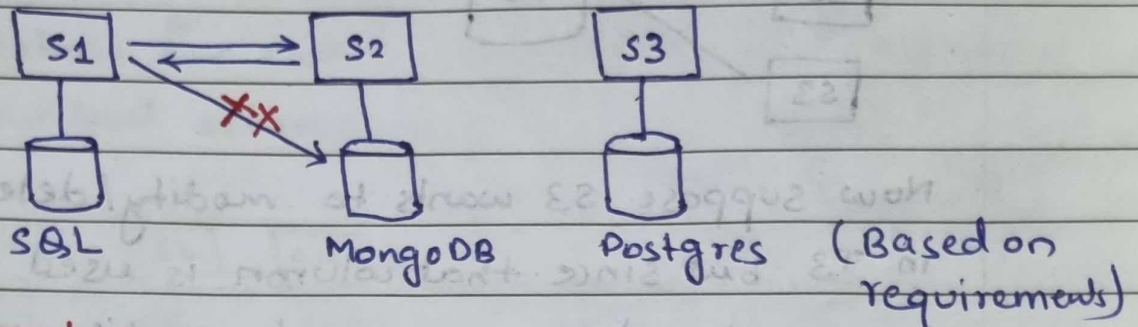 S1 S2 S3
SQL MongoDB Postgres (Based on
requirements)